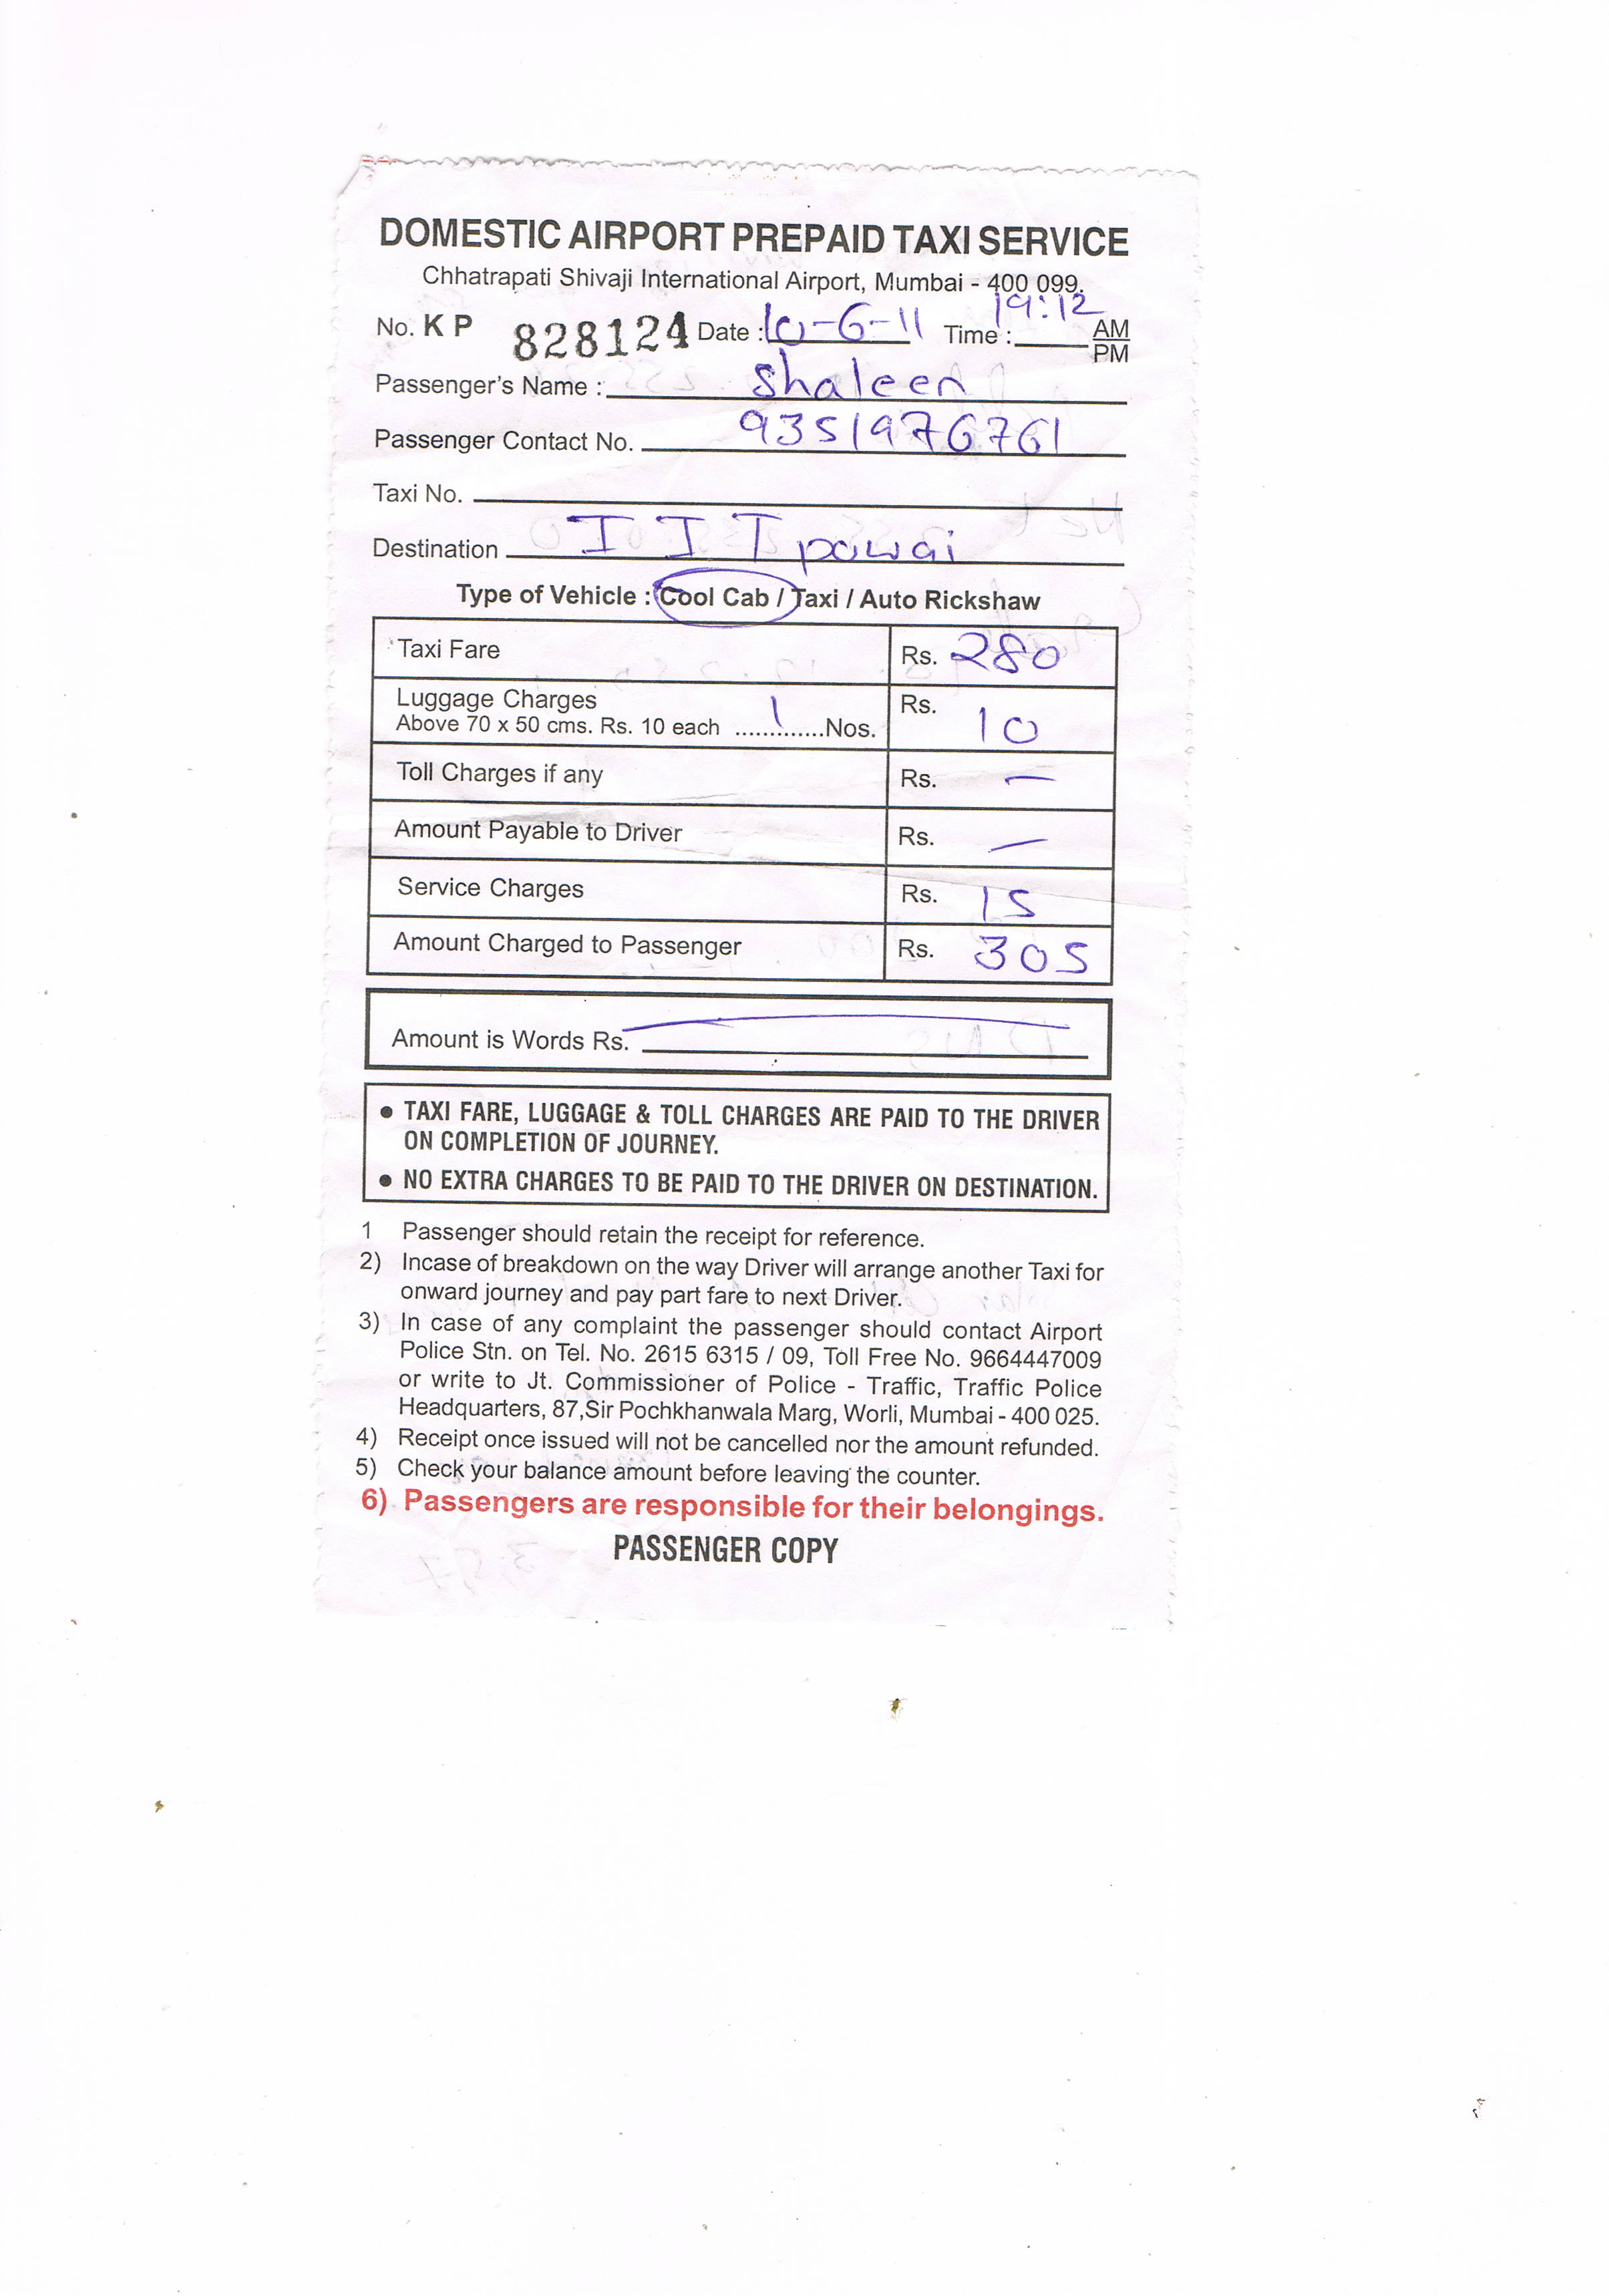 DOMESTIC AIRPORT PREPAID TAXI SERVICE
Chhatrapati Shivaji International Airport, Mumbai - 400 099.
No. K P 828124 Date : 10-6-11 Time : 19:12 AM
PM
Passenger's Name : Shaleen
Passenger Contact No. 9351976761
Taxi No.
Destination IIT powai
Type of Vehicle : Cool Cab / Taxi / Auto Rickshaw
Taxi Fare Rs. 280
Luggage Charges Rs. 10
Above 70 x 50 cms. Rs. 10 each .....1.......Nos.
Toll Charges if any Rs. —
Amount Payable to Driver Rs. —
Service Charges Rs. 15
Amount Charged to Passenger Rs. 305
Amount is Words Rs.
● TAXI FARE, LUGGAGE & TOLL CHARGES ARE PAID TO THE DRIVER
ON COMPLETION OF JOURNEY.
● NO EXTRA CHARGES TO BE PAID TO THE DRIVER ON DESTINATION.
1 Passenger should retain the receipt for reference.
2) Incase of breakdown on the way Driver will arrange another Taxi for
onward journey and pay part fare to next Driver.
3) In case of any complaint the passenger should contact Airport
Police Stn. on Tel. No. 2615 6315 / 09, Toll Free No. 9664447009
or write to Jt. Commissioner of Police - Traffic, Traffic Police
Headquarters, 87,Sir Pochkhanwala Marg, Worli, Mumbai - 400 025.
4) Receipt once issued will not be cancelled nor the amount refunded.
5) Check your balance amount before leaving the counter.
6) Passengers are responsible for their belongings.
PASSENGER COPY